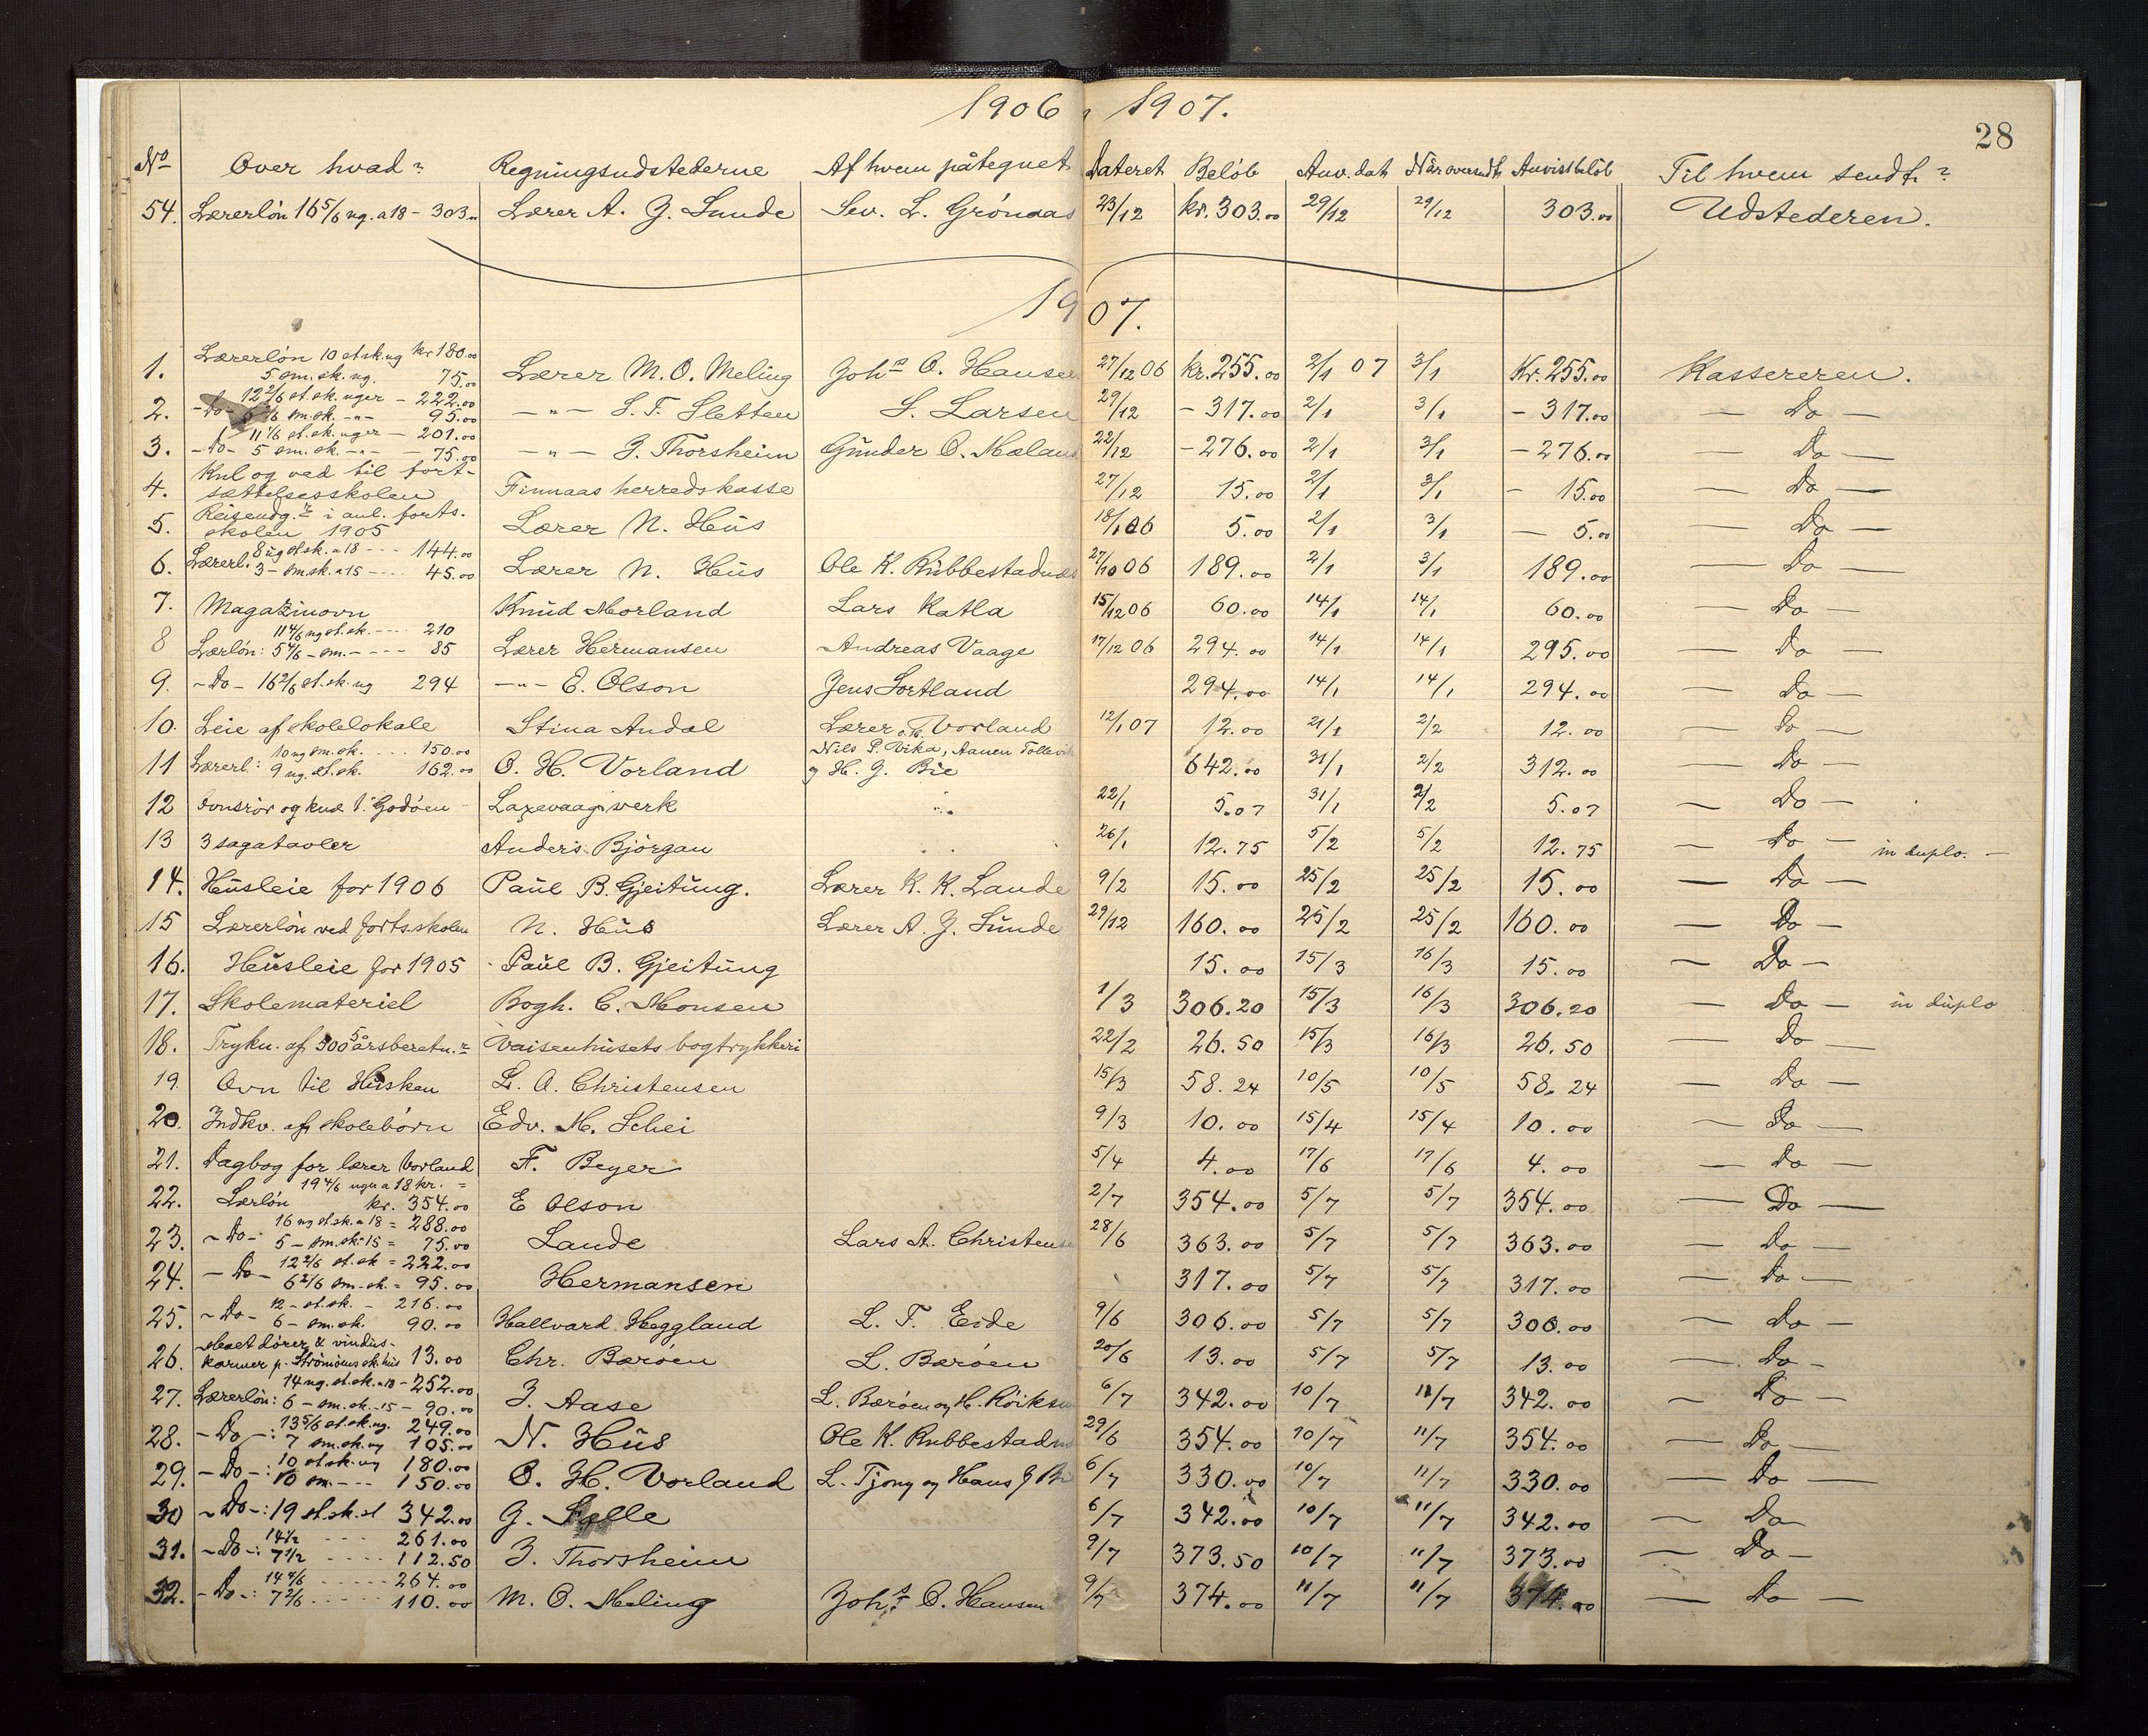 1906
1907.
28
No Over hvad? Regningsudstederne Af hvem påtegnet Dateret Beløb Anv. dat Når oversendt Anvist beløb Til hvem sendt?
54. Lærerløn 16 5/6 ug. a 18 - 303.00 Lærer A. J. Sunde Sev. L. Grönaas 23/12 kr. 303.00 29/12 29/12 303.00 Udstederen.
1907.
Lærerløn 10 st.sk.ug kr 180.00
1. 5 sm.sk.ug. 75.00 Lærer M. O. Meling Johs O. Hansen 27/12 06 kr. 255.00 2/1 07 3/1 Kr. 255.00 Kassereren.
12 2/6 st.sk.uger - 222.00
2. -Do- 6 2/6 sm.sk. -"- 95.00 -"- S. T. Sletten S. Larsen 29/12 - 317.00 2/1 3/1 - 317.00 - Do -
11 1/6 st.sk.uger - 201.00
3. -Do- 5 sm.sk. -"- - 75.00 -"- J. Thorsheim Gunder O. Mæland 22/12 - 276.00 2/1 3/1 - 276.00 - Do -
Kul og ved til fort-
4. sættelsesskolen Finnaas herredskasse 27/12 15.00 2/1 3/1 - 15.00 - Do -
Reiseudg. i anl. forts.
5. skolen 1905 Lærer N. Hus 18/1 06 5.00 2/1 3/1 - 5.00 - Do -
8 ug st.sk. a 18 --- 144.00
6. Lærerl. 3 - sm.sk. a 15 --- 45.00 Lærer N. Hus Ole K. Rubbestadnæs 27/10 06 189.00 2/1 3/1 189.00 - Do -
7. Magazinovn Knud Morland Lars Katla 15/12 06 60.00 14/1 14/1 60.00 - Do -
11 4/6 ug st.sk. --- 210
8 Lærløn: 5 4/6 - sm. - - - 85 Lærer Hermansen Andreas Vaage 17/12 06 294.00 14/1 14/1 295.00 - Do -
9. -Do- 16 2/6 st.sk.ug 294 -"- E. Olson Jens Sortland 294.00 14/1 14/1 294.00 - Do -
10. Leie af skolelokale Stina Andal Lærer O. H. Vorland 12/1 07 12.00 21/1 2/2 12.00 - Do -
10 ug sm.sk. ... 150.00 Nils P. Vika, Aanen Tollevik
11 Lærerl: 9 ug. st.sk. 162.00 O. H. Vorland og H. J. Bie 642.00 31/1 2/2 312.00 - Do -
12 Ovnsrör og knæ t. Godöen Laxevaag verk 22/1 5.07 31/1 2/2 5.07 - Do -
13 3 sagatavler Anders Björgan 26/1 12.75 5/2 5/2 12.75 - Do - in duplo. -
14. Husleie for 1906 Paul B. Gjeitung. Lærer K. K. Lande 9/2 15.00 25/2 25/2 15.00 - Do -
15 Lærerløn ved forts.skolen N. Hus Lærer A. J. Sunde 29/12 160.00 25/2 25/2 160.00 - Do -
16. Husleie for 1905 Paul B. Gjeitung 15.00 15/3 16/3 15.00 - Do -
17. Skolemateriel Bogh. C. Monsen 1/3 306.20 15/3 16/3 306.20 - Do - in duplo
18. Trykn. af 500 5årsberetn. Vaisenhusets bogtrykkeri 22/2 26.50 15/3 16/3 26.50 - Do -
19. Ovn til Husken L. A. Christensen 15/3 58.24 10/5 10/5 58.24 - Do -
20. Indkv. af skolebörn Edv. M. Schei 9/3 10.00 15/4 15/4 10.00 - Do -
21. Dagbog for lærer Vorland F. Beyer 5/4 4.00 17/6 17/6 4.00 - Do -
19 4/6 uger a 18 kr. =
22. Lærløn kr. 354.00 E Olson 2/7 354.00 5/7 5/7 354.00 - Do -
16 ug st.sk. a 18 = 288.00
23. -Do- 5 - sm.sk. 15 = 75.00 Lande Lars A. Christensen 28/6 363.00 5/7 5/7 363.00 - Do -
12 2/6 st.sk = 222.00
24. -Do- 6 2/6 sm.sk. = 95.00 Hermansen 317.00 5/7 5/7 317.00 - Do -
12 - st.sk. - 216.00
25. -Do- 6 - sm.sk. 90.00 Hallvard Heggland L. T. Eide 9/6 306.00 5/7 5/7 306.00 - Do -
Maet dörer & vindus-
26. karmer p. Strömöens sk.hus 13.00 Chr. Baröen L. Baröen 20/6 13.00 5/7 5/7 13.00 - Do -
14 ug. st.sk. a 18 - 252.00
27. Lærerløn: 6 - sm.sk. - 15 - 90.00 J. Aase L. Baröen og H. 6/7 342.00 10/7 11/7 342.00 - Do -
13 5/6 st.sk.ug. 249.00
28. -Do-: 7 sm.sk.ug 105.00 N. Hus Ole K. Rubbestadnæs 29/6 354.00 10/7 11/7 354.00 - Do -
10 st.sk.ug 180.00
29. -Do-: 10 sm. --- 150.00 O. H. Vorland L. Tjong og Hans J Bie 6/7 330.00 10/7 11/7 330.00 - Do -
30 -Do-: 19 st.sk. 342.00 G. Selle 6/7 342.00 10/7 11/7 342.00 - Do
14 1/2 --- 261.00
31. -Do-: 7 1/2 ---- 112.50 J. Thorsheim 9/7 373.50 10/7 11/7 373.00 - Do -
14 4/6 ----- 264.00
32. -Do-: 7 2/6 ----- 110.00 M. O. Meling Johs O. Hansen 9/7 374.00 11/7 11/7 374.00 - Do -